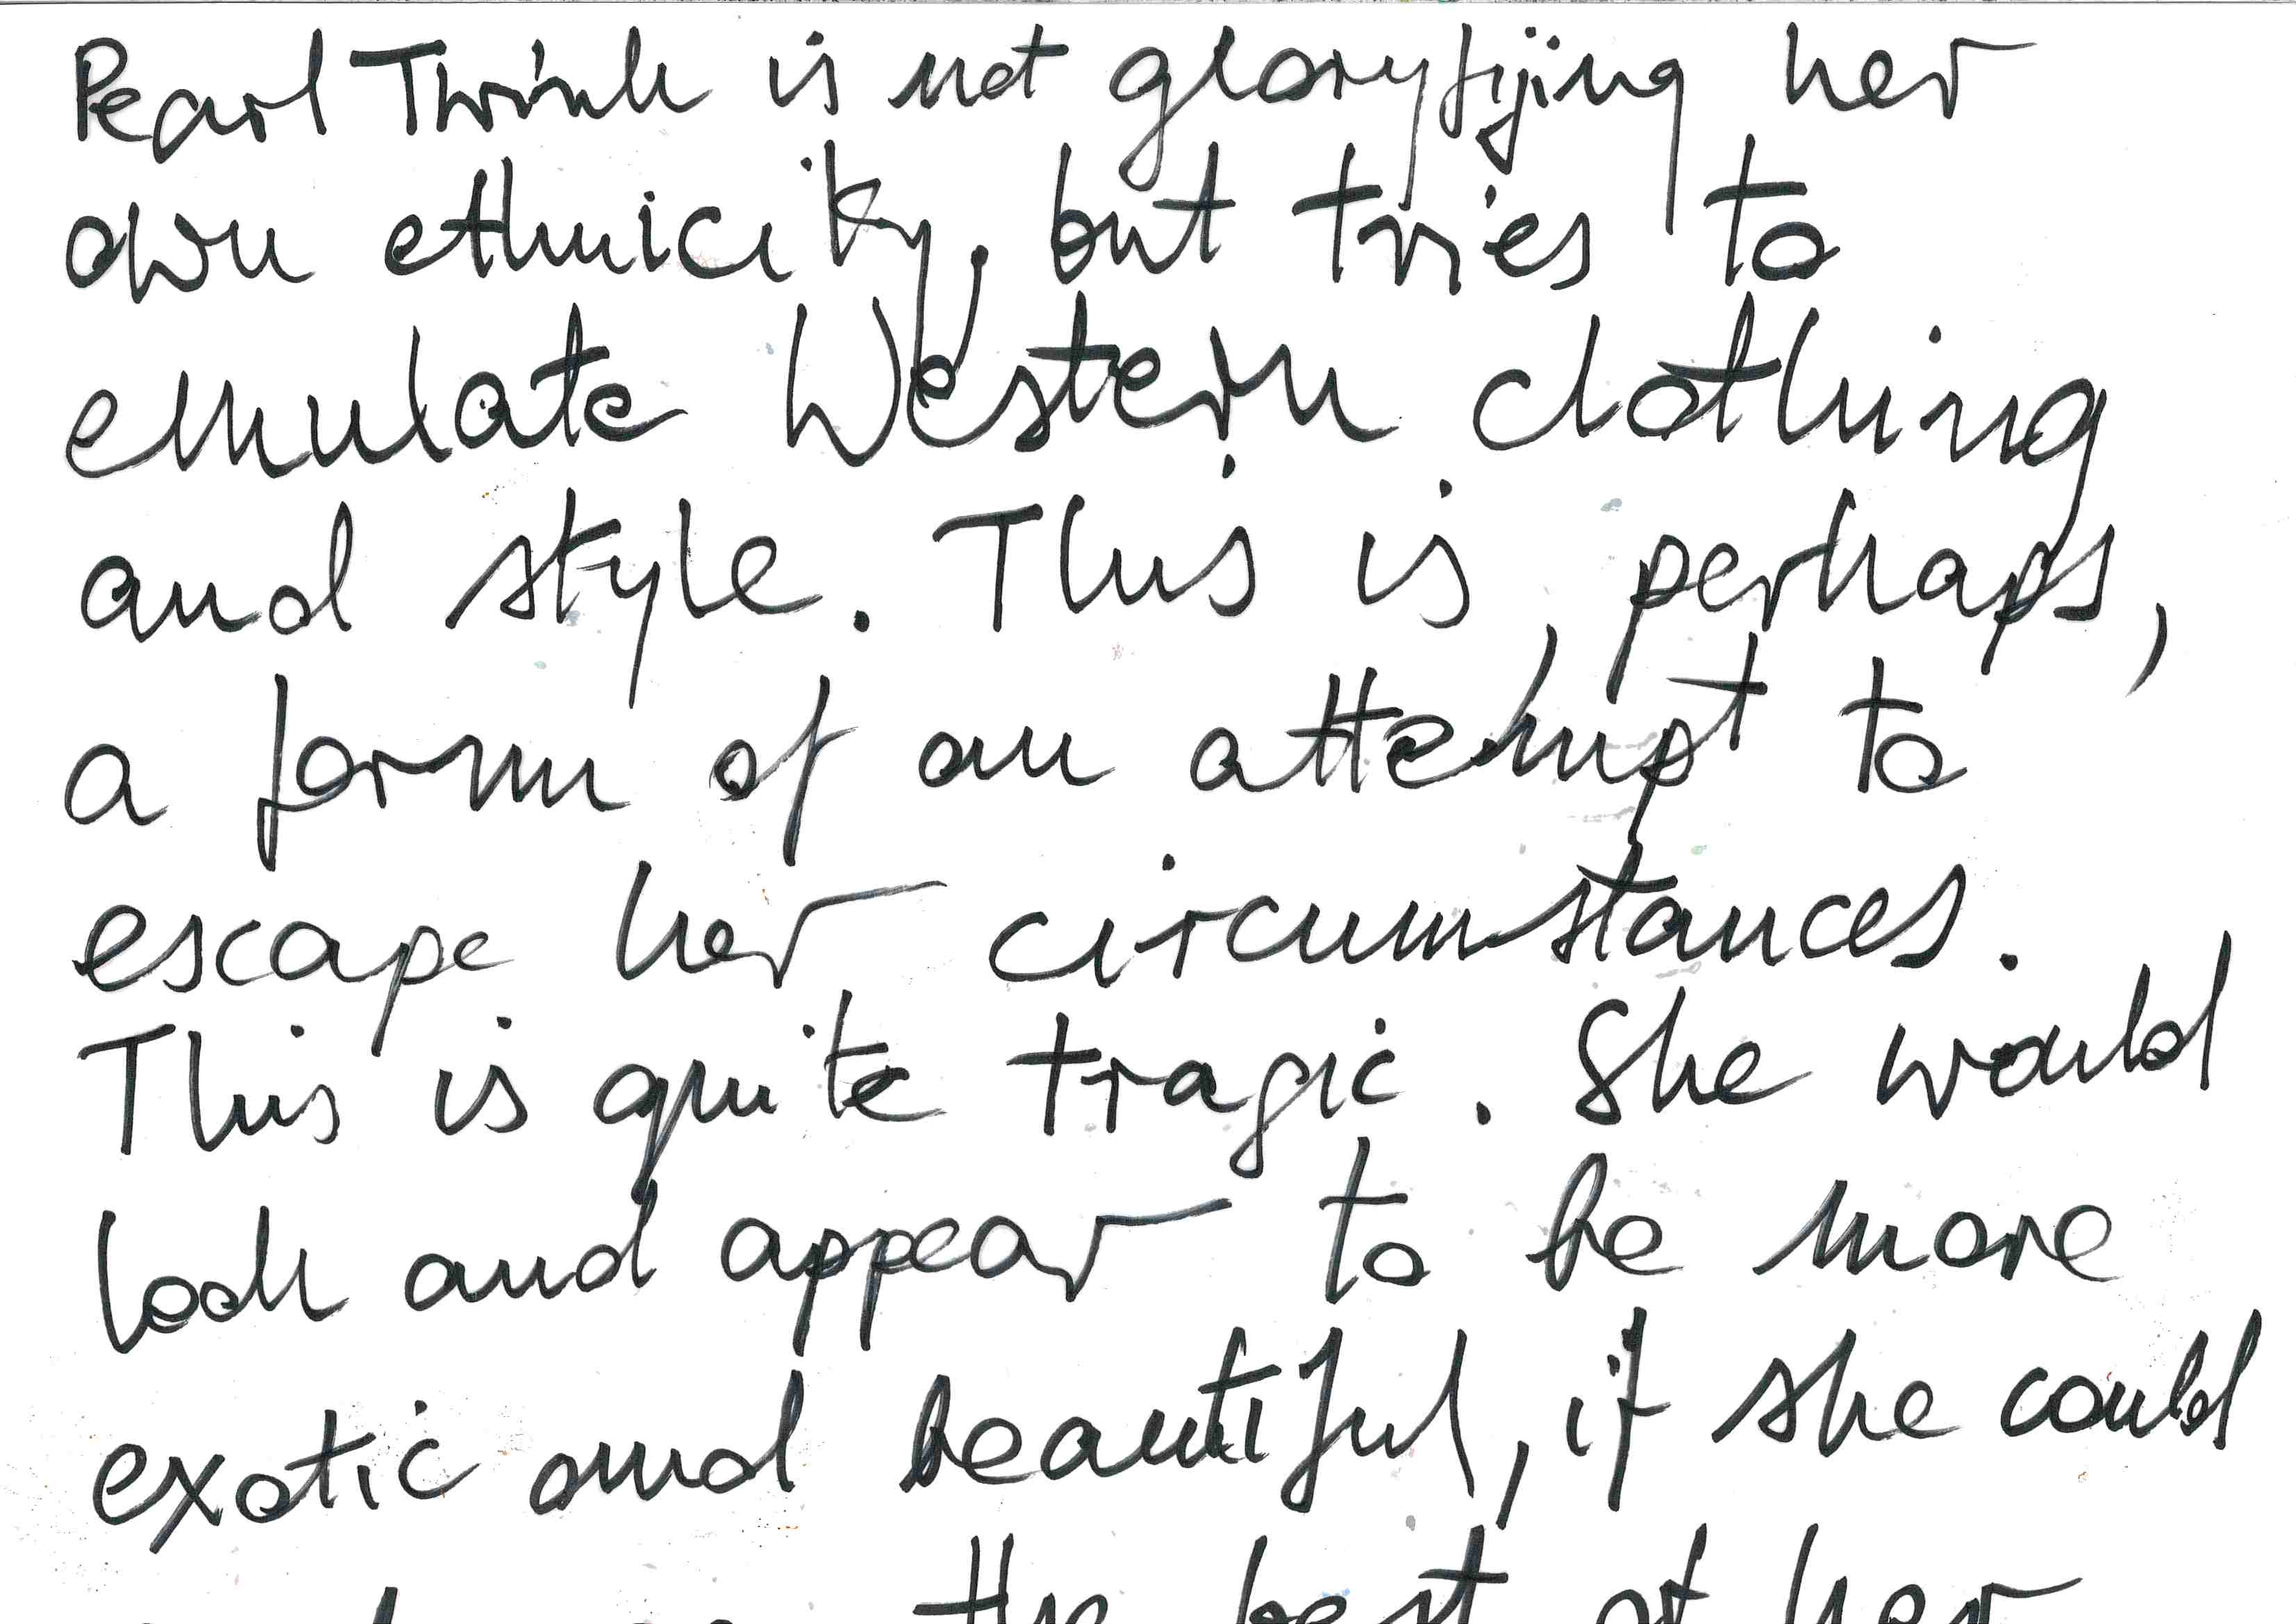 Pearl Twink is not gloryfying her
own ethnicity, but tries to
emulate Western clothing
and style. This is, perhaps,
a form of an attempt to
escape her circumstances.
This is quite tragic. She would
look and appear to be more
exotic and beautiful, if she could
the best of her